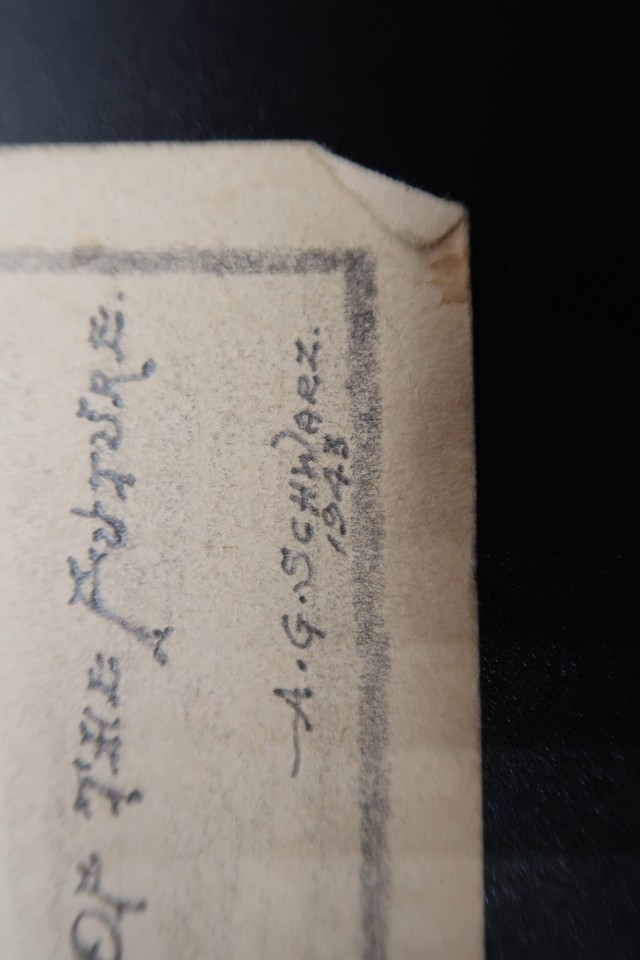 OF THE FUTURE.
A.G.SCHWARZ.
1943